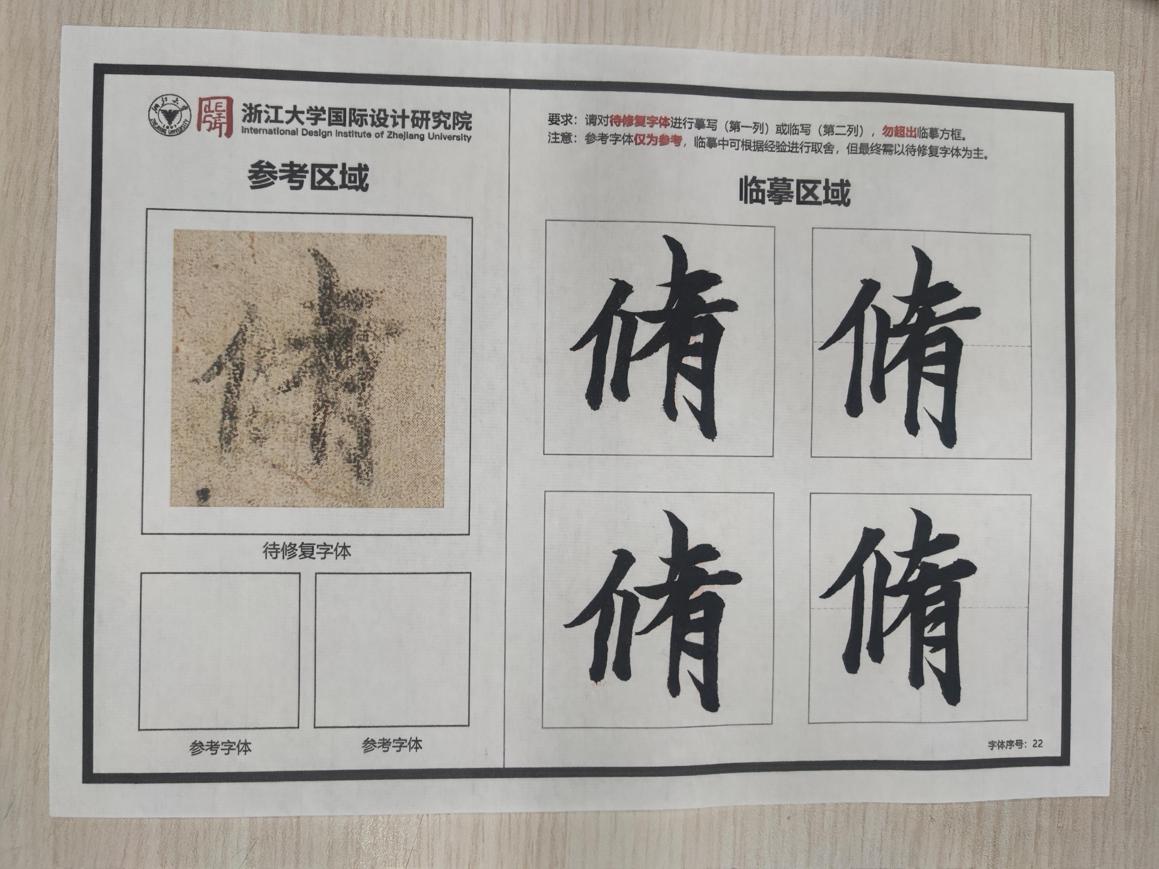 浙江大学国际设计研究院
International Design Institute of Zhejiang University
参考区域
待修复字体
参考字体
参考字体
要求：请对待修复字体进行摹写（第一列）或临写（第二列），勿超出临摹方框。
注意：参考字体仅为参考，临摹中可根据经验进行取舍，但最终需以待修复字体为主。
临摹区域
脩 脩
脩 脩
字体序号：22